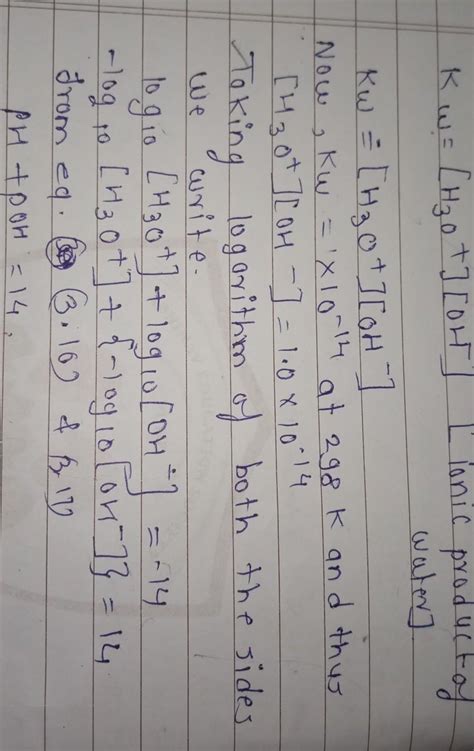 Kw = [H3O+][OH-] [ionic product of
water]
Kw = [H3O+][OH-]
Now, Kw = 1x10-14 at 298 K and thus
[H3O+][OH-] = 1.0 x 10-14
Taking logarithm of both the sides
we write.
log10 [H3O+] + log10 [OH-] = -14
-log10 [H3O+] + {-log10 [OH-]} = 14
from eq. (3.16) & 3.17)
pH + pOH = 14